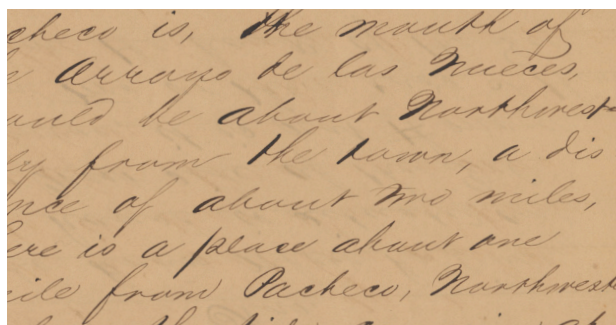 checo is, the mouth of
Arroyo de las Nueces,
ould be about Northwest-
ly from the town, a dis
nce of about two miles,
ere is a place about one
ile from Pacheco, Northwest